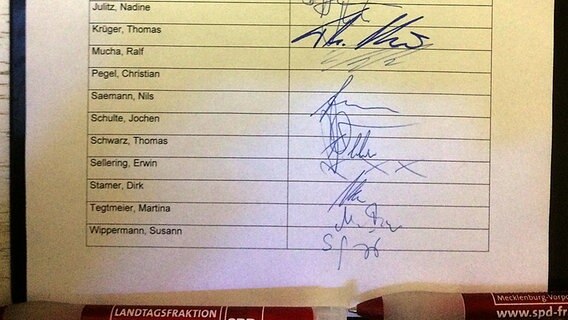 Julitz, Nadine
Krüger, Thomas
Mucha, Ralf
Pegel, Christian
Saemann, Nils
Schulte, Jochen
Schwarz, Thomas
Sellering, Erwin
X X X
Stamer, Dirk
Tegtmeier, Martina
Wippermann, Susann
LANDTAGSFRAKTION SPD
Mecklenburg-Vorpo
www.spd-fr